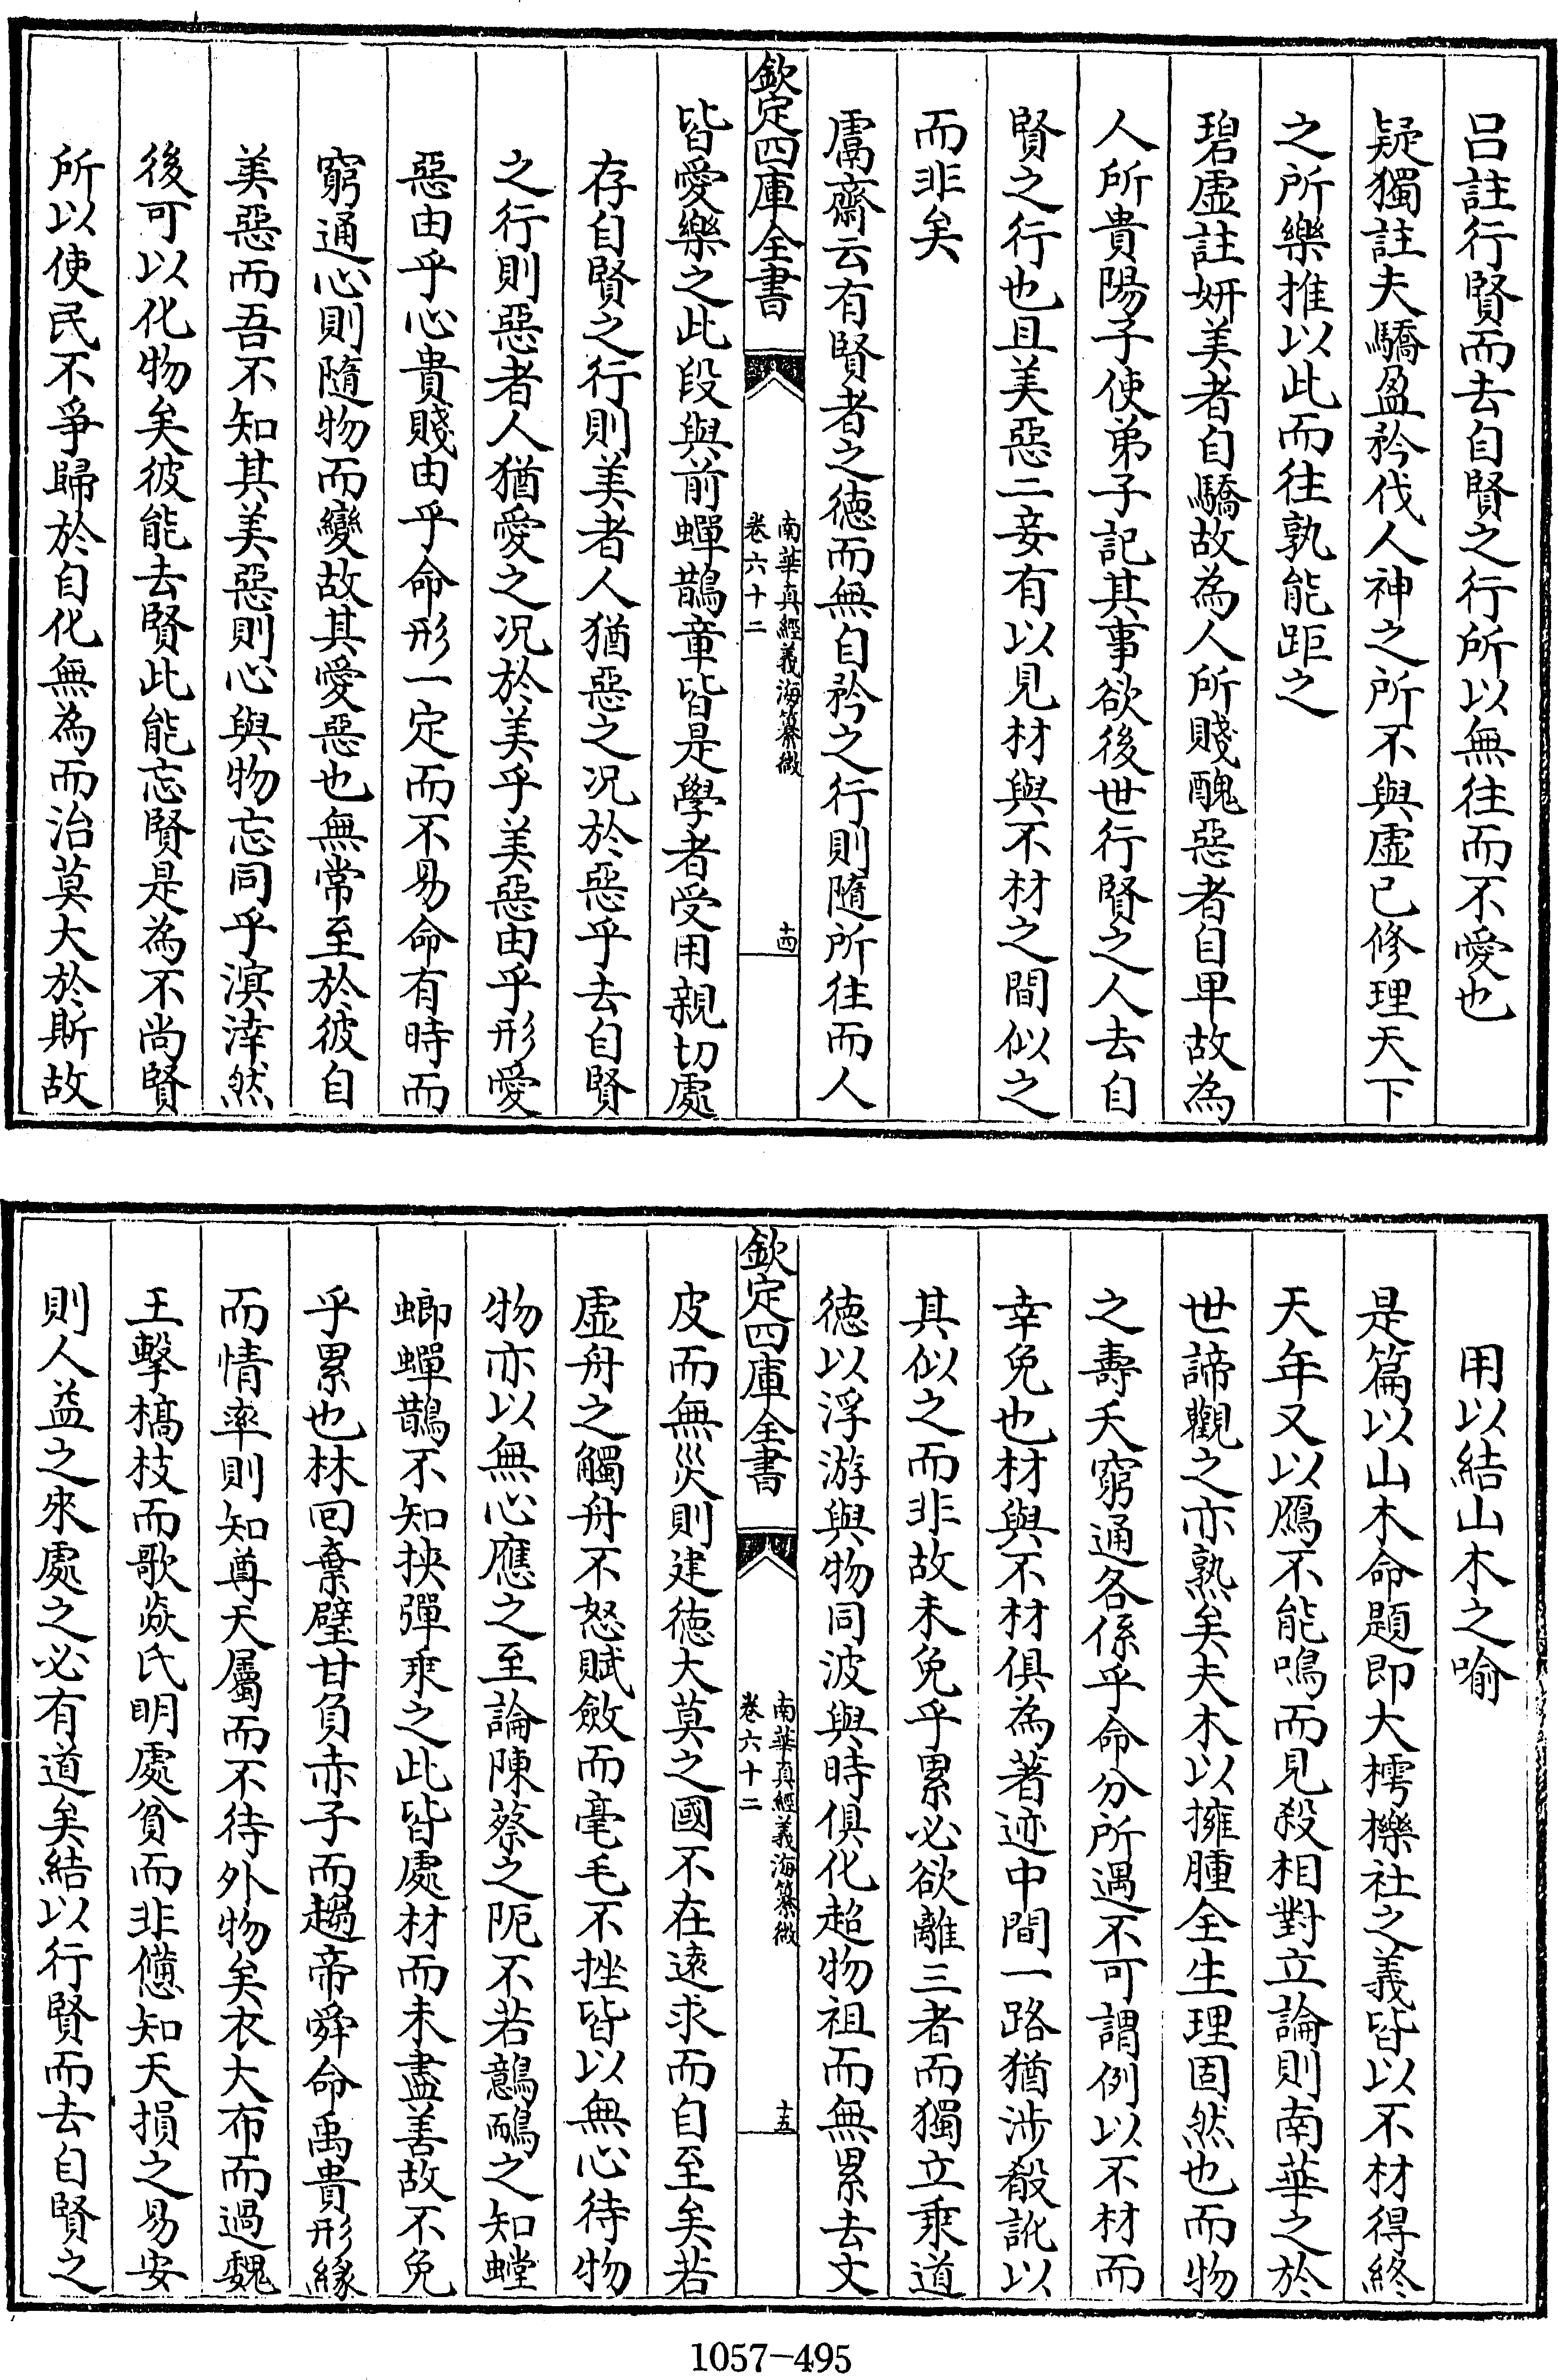 呂註行賢而去自賢之行所以無往而不愛也
疑獨註夫驕盈矜伐人神之所不與虛已修理天下
之所樂推以此而往孰能距之
碧虛註妍美者自驕故為人所賤醜惡者自卑故為
人所貴陽子使弟子記其事欲後世行賢之人去自
賢之行也且美惡二妾有以見材與不材之間似之
而非矣
鬳齋云有賢者之徳而無自矜之行則隨所往而人
欽定四庫全書
南華真經義海纂微
卷六十二
十四
皆愛樂之此段與前蟬鵲章皆是學者受用親切處
存自賢之行則美者人猶惡之况於惡乎去自賢
之行則惡者人猶愛之况於美乎美惡由乎形愛
惡由乎心貴賤由乎命形一定而不易命有時而
窮通心則隨物而變故其愛惡也無常至於彼自
美惡而吾不知其美惡則心與物忘同乎溟涬然
後可以化物矣彼能去賢此能忘賢是為不尚賢
所以使民不爭歸於自化無為而治莫大於斯故
用以結山木之喻
是篇以山木命題即大樗櫟社之義皆以不材得終
天年又以鴈不能鳴而見殺相對立論則南華之於
世諦觀之亦熟矣夫木以擁腫全生理固然也而物
之壽夭窮通各係乎命分所遇不可謂例以不材而
幸免也材與不材俱為著迹中間一路猶涉殽訛以
其似之而非故未免乎累必欲離三者而獨立乗道
徳以浮游與物同波與時俱化超物祖而無累去文
欽定四庫全書
南華真經義海纂微
卷六十二
十五
皮而無災則建徳大莫之國不在逺求而自至矣若
虛舟之觸舟不怒賦斂而毫毛不挫皆以無心待物
物亦以無心應之至論陳蔡之阨不若鷾鴯之知螳
蜋蟬鵲不知挾彈乗之此皆處材而未盡善故不免
乎累也林回棄璧甘負赤子而趨帝舜命禹貴形緣
而情率則知尊天屬而不待外物矣衣大布而過魏
王擊槁枝而歌焱氏明處貧而非憊知天損之易安
則人益之來處之必有道矣結以行賢而去自賢之
1057-495